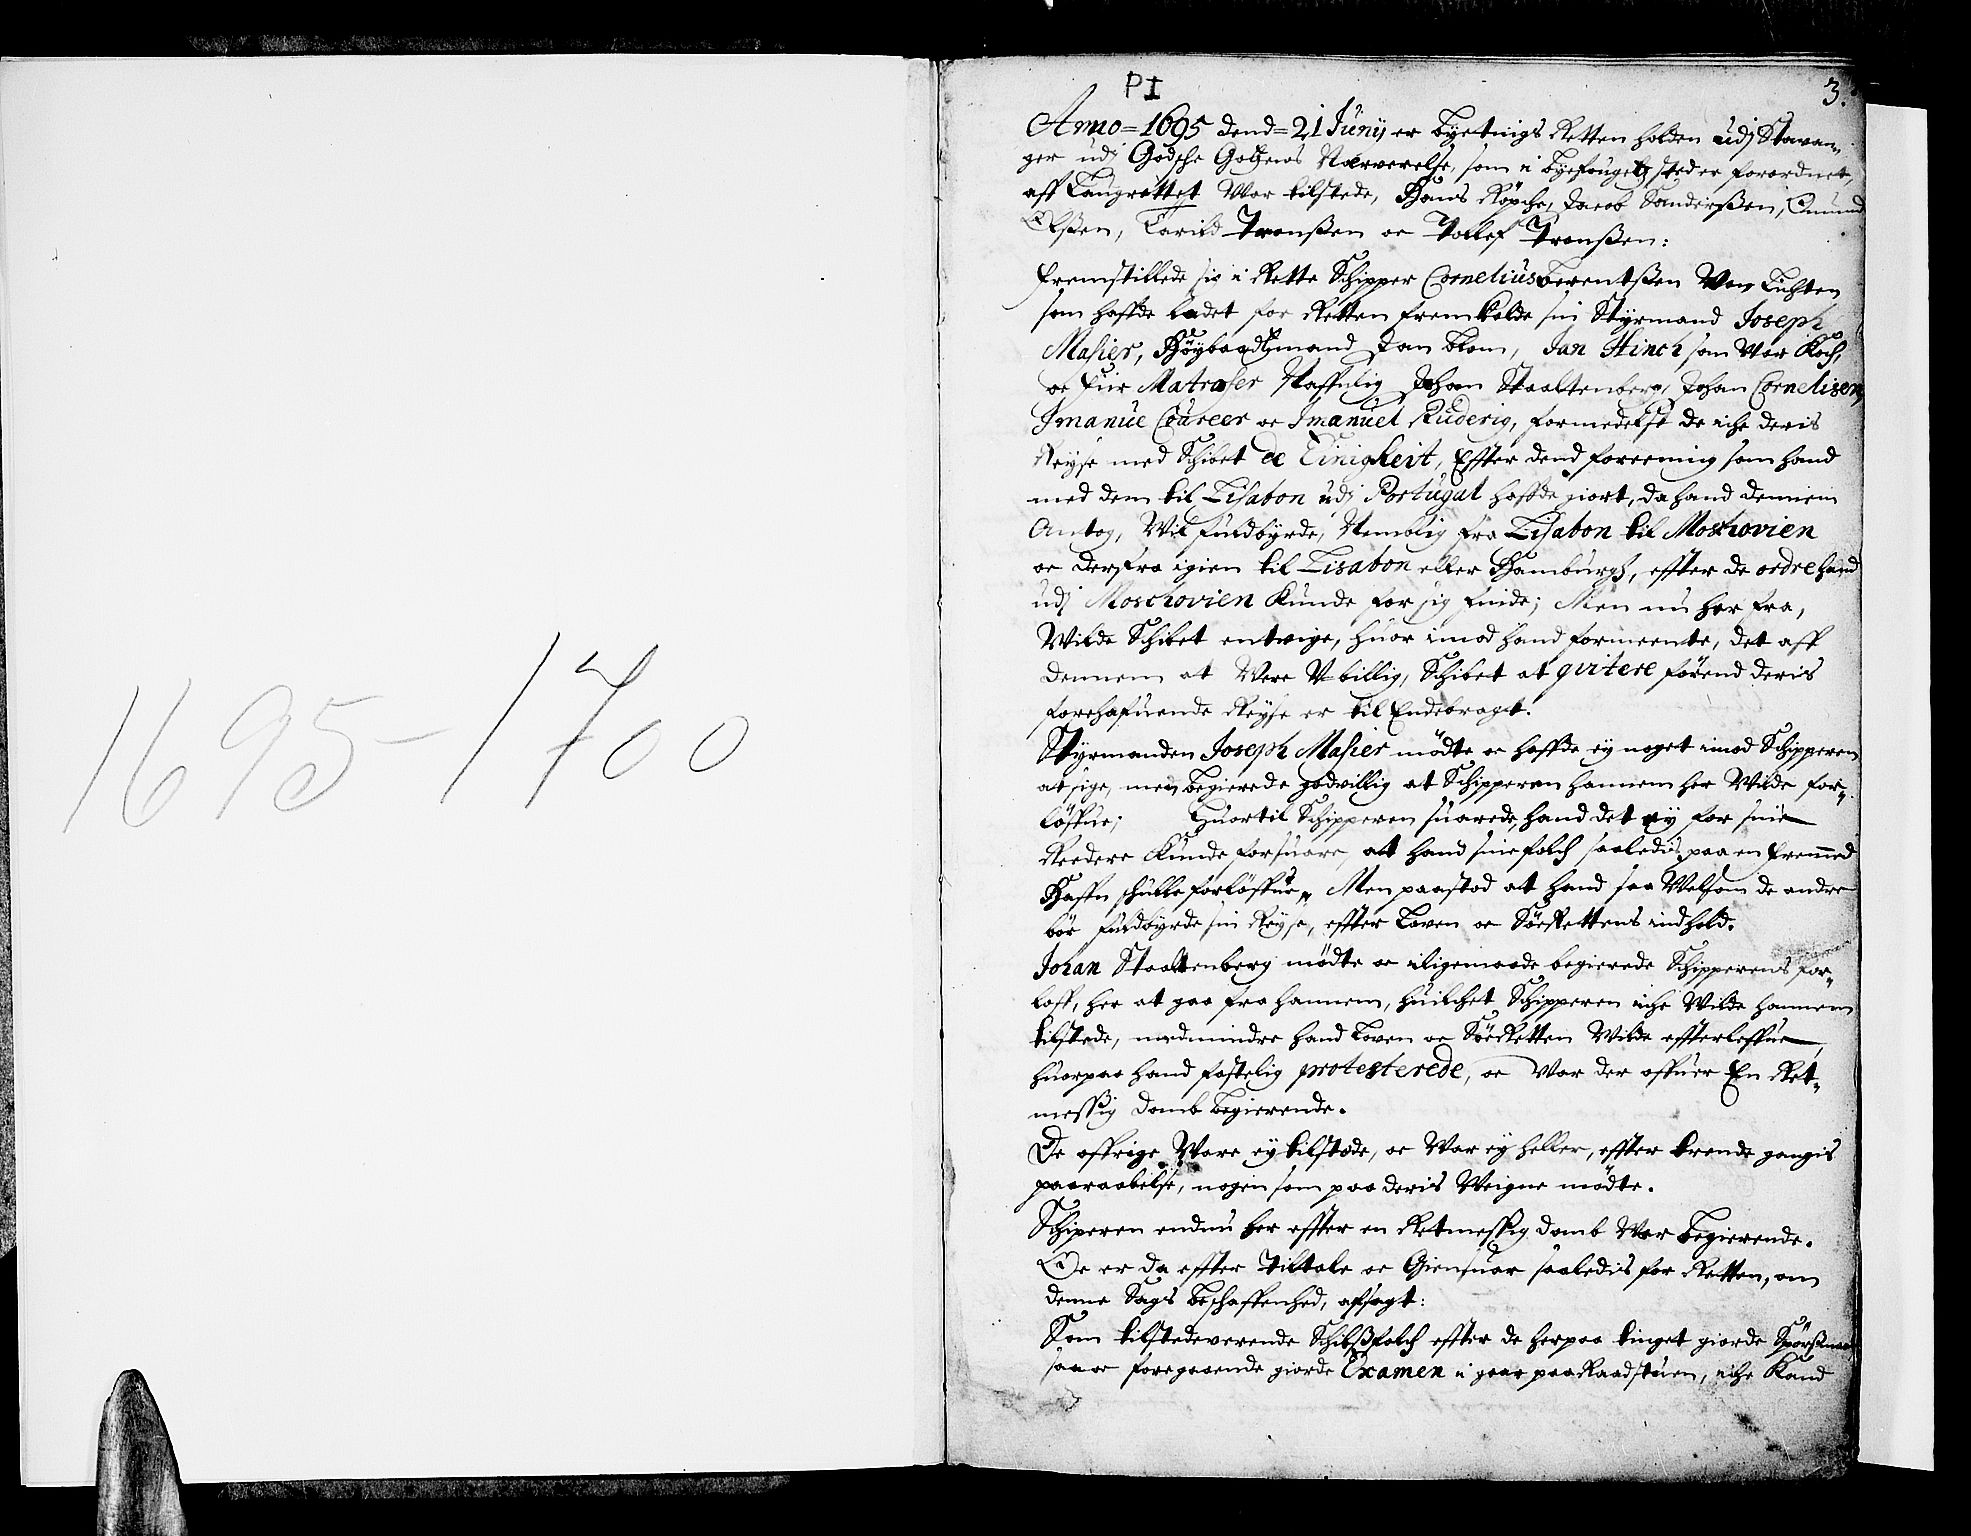 1695-1700
PI
3.
Anno = 1695 dend = 21 Junij er byetings Retten holden udj Stavan„
ger udj Godsche Gotzens Nærverelse, som i byefougetz sted er forordnet,
aff Laugrettet War tilstede, Hans Röpche, Jacob Sanderßen, Omund
Olßen, Tarild Tronßen oc Tollef Tronßen:
fremstillede sig i Rette Schipper Cornelius berentßen Von Luchten
som hafde ladet for Retten fremkalde sin Styrmand Joseph
Masier, Höybaadtzmand Jan blom, Jan Hinch som War Koch,
oc fiir Matroser Naffnlig Johan Staaltenberg, Johan Cornelisen,
Imanue Coureer oc Imanuel Ruderig, formedelst de iche deris
Reyse med Schibet de Einigkeit, Effter dend foreening som hand
med dem til Lisabon udj Portugal hafde giort, da hand dennem
Antog, Wil fuldbyrde, Nemblig fra Lisabon til Moschovien
oc derfra igien til Lisabon eller Hamburgh, effter de ordre hand
udj Moschovien Kunde for sig finde; Men nu her fra,
Wilde Schibet entvige, huor imod hand formeente, det aff
dennem at Were U-billig, Schibet at qvitere förend deris
forehafuende Reyse er til Endebragt.
Styrmanden Joseph Masier mödte oc haffde ey noget imod Schipperen
at sige, men begierede godvillig at Schipperen hannem her Wilde for„
löffue; Huortil Schipperen suarede, hand det ey for sine
Reedere Kunde forsuare, att hand sine folch saaledis paa en fremmed
Haffn schulle forlöffue, Men paastod at hand saa Wel som de andre
bör fuldbyrde sin Reyse, effter Loven oc SöeRettens indhold.
Johan Staaltenberg mödte oc iligemaade begierede Schipperens for„
loff, her at gaa fra hannem, huilchet Schipperen iche Wilde hannem
tilstede, medmindre hand Loven oc SöeRetten Wilde effterleffue,
huorpaa hand festelig protesterede, oc War der offuer En Ret„
messig domb begierende.
De öffrige Ware ey tilstede, oc War ey heller, effter trende gangis
paaraabelse, nogen som paa deris Weigne mödte.
Schiperen endnu her effter en Retmessig domb War begierende.
Oc er da effter Tiltale oc Giensuar saaledis for Retten, om
denne Sags beschaffenhed, afsagt:
Som tilstedeverende Schibsfolch effter de herpaa tinget giorde Spörßmaal
saa oc foregaaende giorde Examen i gaar paa Raadstuen, iche Kand